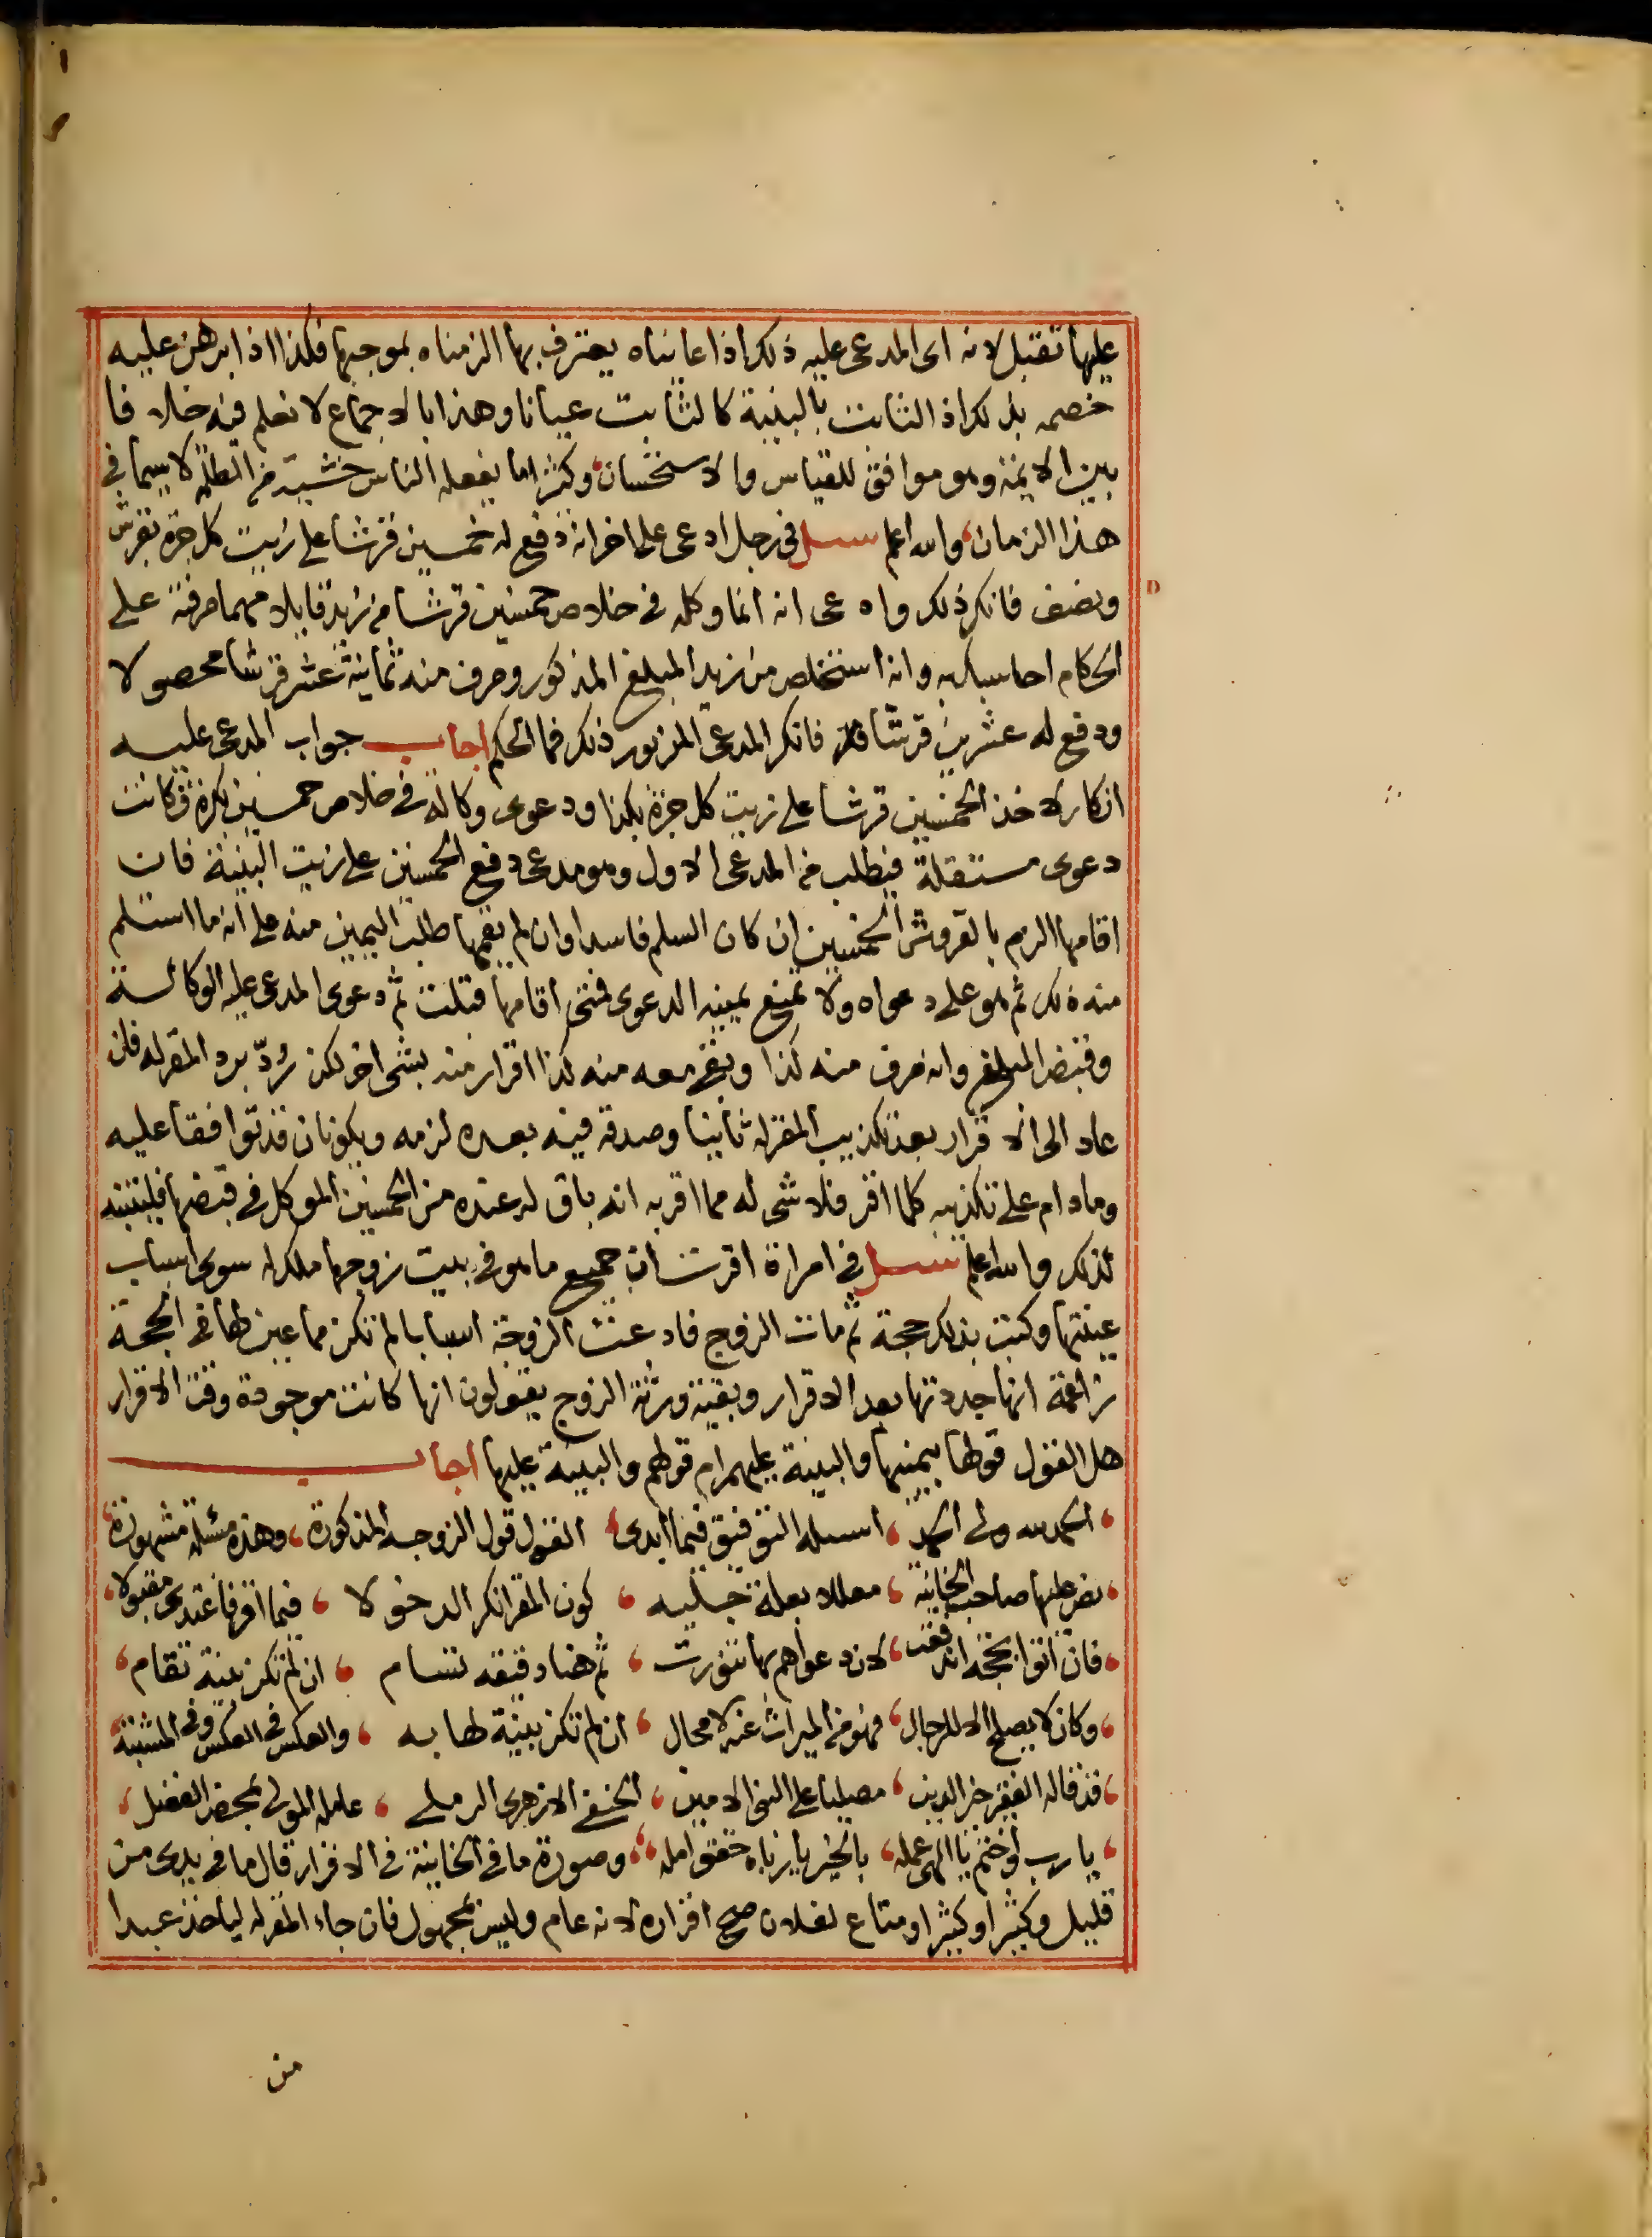 عليها تقبل لانه اى المدعى عليه ذلك اذا عايناه يعترف بها الزمناه بموجبها فكذا اذا برهن عليه
خصمه بذلك اذ الثابت بالبينة كالثابت عيانا وهذا بالاجماع لا نعلم فيه خلافا
بين الايمة وهو موافق للقياس والاستحسان وكثيرا ما يفعله الناس خشية من الظلمة لا سيما فى
هذا الزمان والله اعلم سئل فى رجل ادعى على اخر انه دفع له خمسين قرشا على زيت كل جرة بقرش
ونصف فانكر ذلك وادعى انه انما وكله فى خلاص خمسين قرشا من زيد قايلا مهما صرفته على
الحكام احاسبك به وانه استخلص من زيد المبلغ المذكور وصرف منه ثمانية عشر قرشا محصولا
ودفع له عشرين قرشا فانكر المدعى المزبور ذلك فما الحكم اجاب جواب المدعى عليه
انكار لاخذ الخمسين قرشا على زيت كل جرة بكذا ودعوى وكالة فى خلاص خمسين بكرة فكانت
دعوى مستقلة فيطلب من المدعى الاول وهو مدعى دفع الخمسين على زيت البينة فان
اقامها الزم بالقروش الخمسين ان كان السلم فاسدا وان لم يقمها طلب اليمين منه على انه ما استلم
منه ذلك ثم هو على دعواه ولا تمنع يمينه الدعوى فمتى اقامها قبلت ثم دعوى المدعى عليه الوكالة
وقبض المبلغ وانه صرف منه كذا وبقى معه منه كذا اقرار منه بشى اخر لكن رد برد المقر له فان
عاد الى الاقرار بعد تكذيب المقر له ثانيا وصدقه فيه بعده لزمه ويكونان قد توافقا عليه
وما دام على تكذيبه كلما اقر فلا شى له مما اقر به انه باق له عنده من الخمسين الموكل فى قبضها فليتنبه
لذلك والله اعلم سئل فى امراة اقرت ان جميع ما هو فى بيت زوجها ملك له سوى اسباب
عينتها وكتبت بذلك حجة ثم مات الزوج فادعت الزوجة اسبابا لم تكن مما عين لها فى الحجة
زاعمة انها جددتها بعد الاقرار وبقية ورثة الزوج يقولون انها كانت موجودة وقت الاقرار
هل القول قولها بيمينها والبينة عليهم ام قولهم والبينة عليها اجاب
الحمد لله ولى الحمد اسله التوفيق فيما ابدى القول قول الزوجة المذكورة وهذه مسئلة مشهورة
نص عليها صاحب الخانية معللا بعلة جلية كون المقر انكر الدخولا فيما اقر فاغتدى مقبولا
فان اتوا بحجة اندفعت لان دعواهم بها تنورت ثم هنا دقيقة تسام ان لم تكن بينة تقام
وكان لا يصلح الا للرجال فهو من الميراث عنه لا محال ان لم تكن بينة لها به والعكس فى العكس وفى المشتبه
قد قاله الفقير خير الدين مصليا على النبى الامين الحنفى الازهرى الرملى عامله المولى بمحض الفضل
يا رب اوختم يا الهى عمله بالخير يا رباه حقق امله وصورة ما فى الخانية فى الاقرار قال ما فى يدى من
قليل وكثير او كثير او متاع لفلان صح اقراره لانه عام وليس بمجهول فان جاء المقر له لياخذ عبدا
من